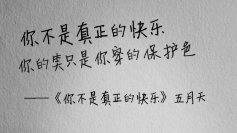 你不是真正的快乐
你的笑只是你穿的保护色
——《你不是真正的快乐》五月天